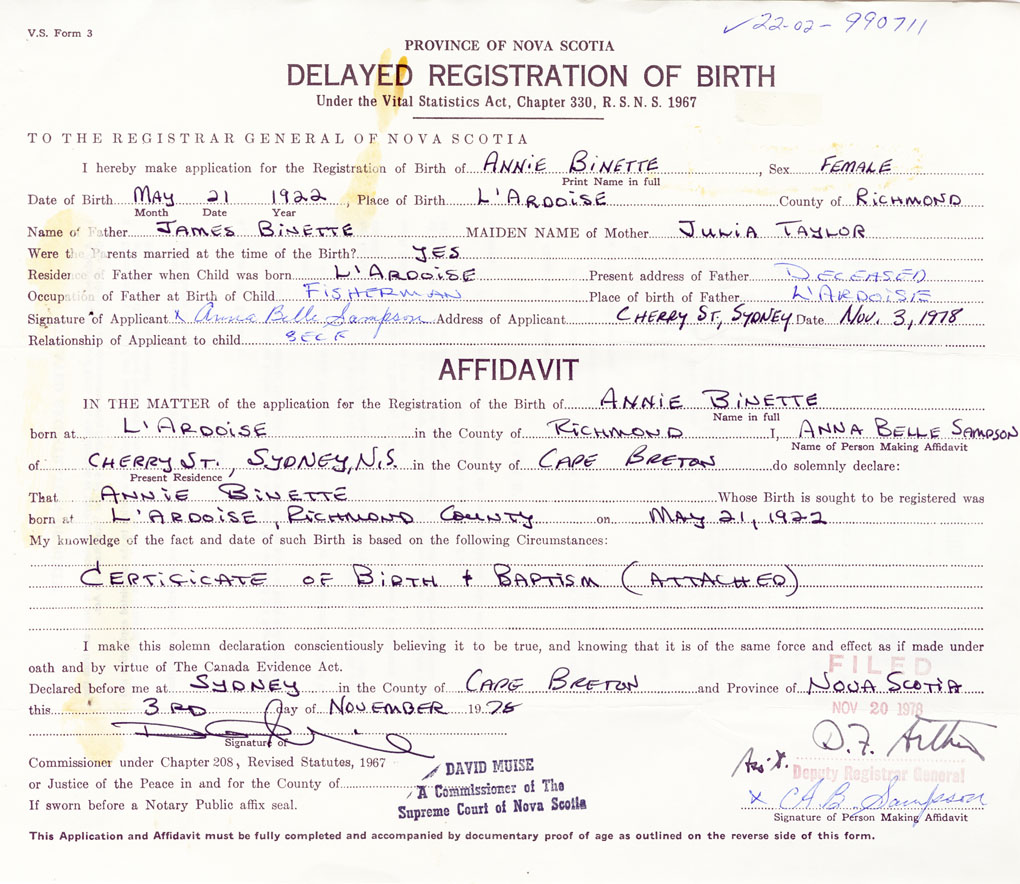 V.S. Form 3
✓22-02-990711
PROVINCE OF NOVA SCOTIA
DELAYED REGISTRATION OF BIRTH
Under the Vital Statistics Act, Chapter 330, R.S.N.S. 1967
TO THE REGISTRAR GENERAL OF NOVA SCOTIA
I hereby make application for the Registration of Birth of ANNIE BINETTE, Sex FEMALE
Print Name in full
Date of Birth MAY 21 1922, Place of Birth L'ARDOISE County of RICHMOND
Month Date Year
Name of Father JAMES BINETTE MAIDEN NAME of Mother JULIA TAYLOR
Were the Parents married at the time of the Birth? YES
Residence of Father when Child was born L'ARDOISE Present address of Father DECEASED
Occupation of Father at Birth of Child FISHERMAN Place of birth of Father L'ARDOISIE
Signature of Applicant x Anna Belle Sampson Address of Applicant CHERRY ST, SYDNEY Date NOV. 3, 1978
Relationship of Applicant to child SELF
AFFIDAVIT
IN THE MATTER of the application for the Registration of the Birth of ANNIE BINETTE
Name in full
born at L'ARDOISE in the County of RICHMOND I, ANNA BELLE SAMPSON
Name of Person Making Affidavit
of CHERRY ST., SYDNEY, N.S. in the County of CAPE BRETON do solemnly declare:
Present Residence
That ANNIE BINETTE Whose Birth is sought to be registered was
born at L'ARDOISE, RICHMOND COUNTY on MAY 21, 1922
My knowledge of the fact and date of such Birth is based on the following Circumstances:
CERTIFICATE OF BIRTH + BAPTISM (ATTACHED)
I make this solemn declaration conscientiously believing it to be true, and knowing that it is of the same force and effect as if made under
oath and by virtue of The Canada Evidence Act.
FILED
Declared before me at SYDNEY in the County of CAPE BRETON and Province of NOVA SCOTIA
this 3RD day of NOVEMBER 1978
NOV 20 1978
Signature of
Commissioner under Chapter 208, Revised Statutes, 1967
or Justice of the Peace in and for the County of
If sworn before a Notary Public affix seal.
DAVID MUISE
A Commissioner of The
Supreme Court of Nova Scotia
Deputy Registrar General
x A.B. Sampson
Signature of Person Making Affidavit
This Application and Affidavit must be fully completed and accompanied by documentary proof of age as outlined on the reverse side of this form.